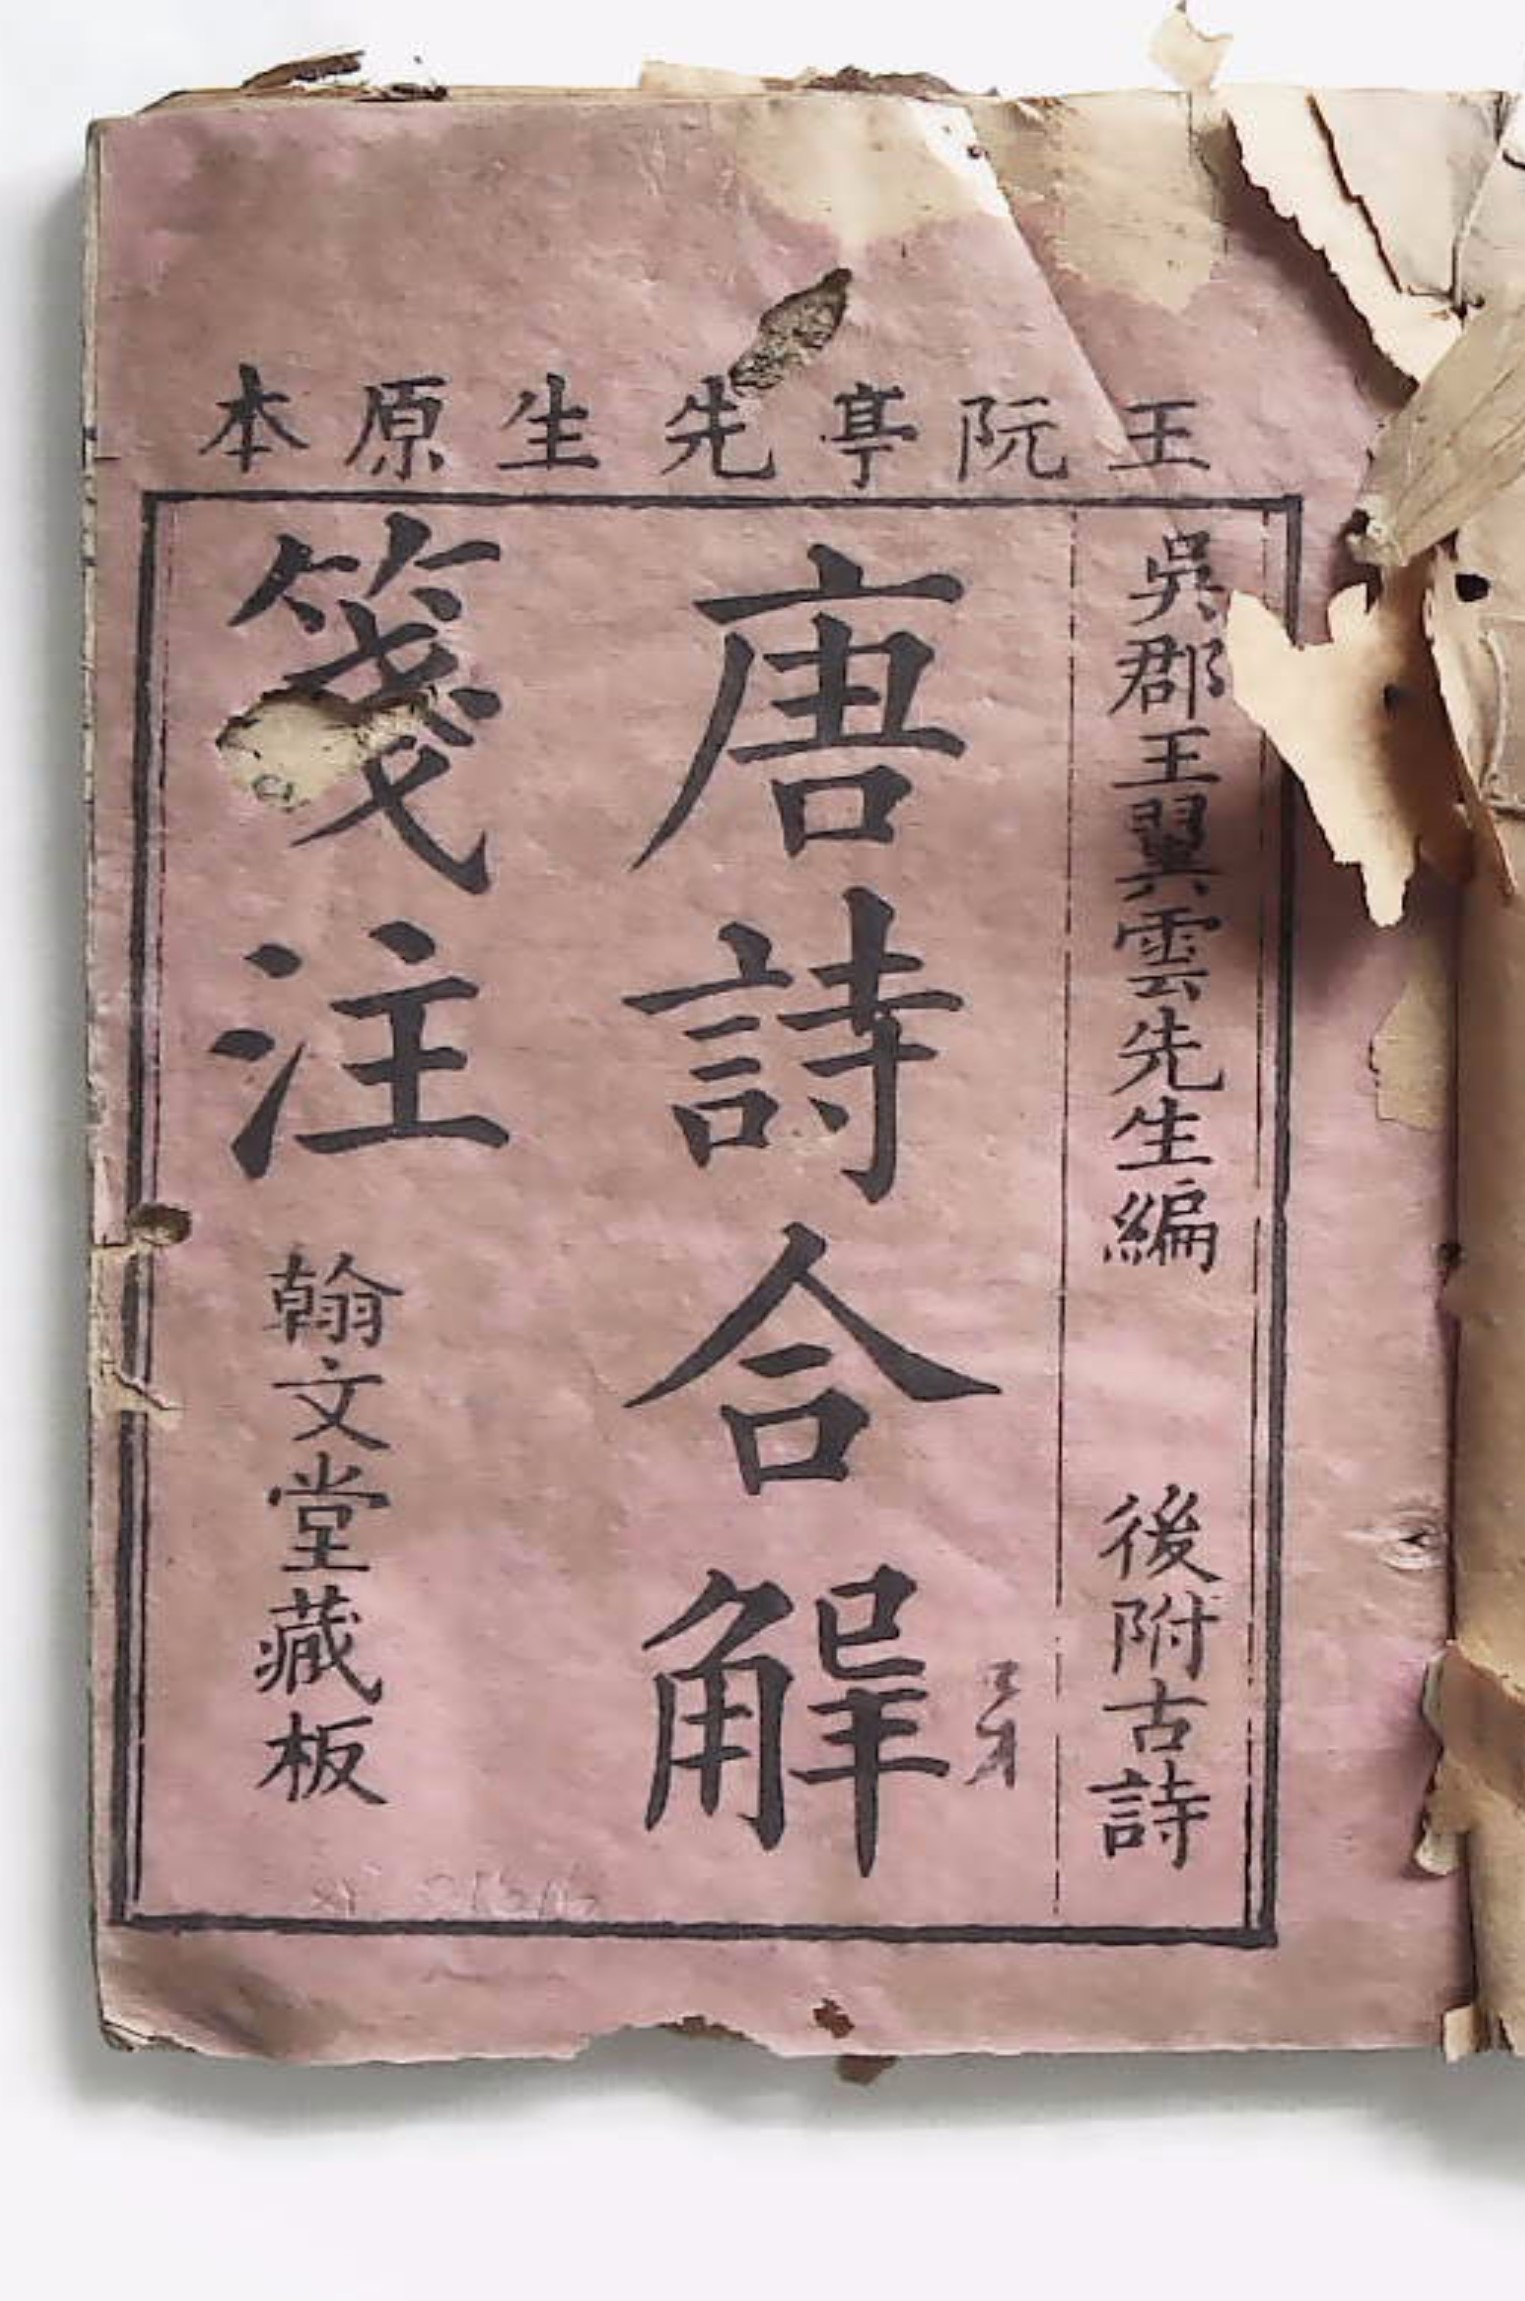 王阮亭先生原本
吳郡王翼雲先生編
後附古詩
唐詩合解
箋注
翰文堂藏板